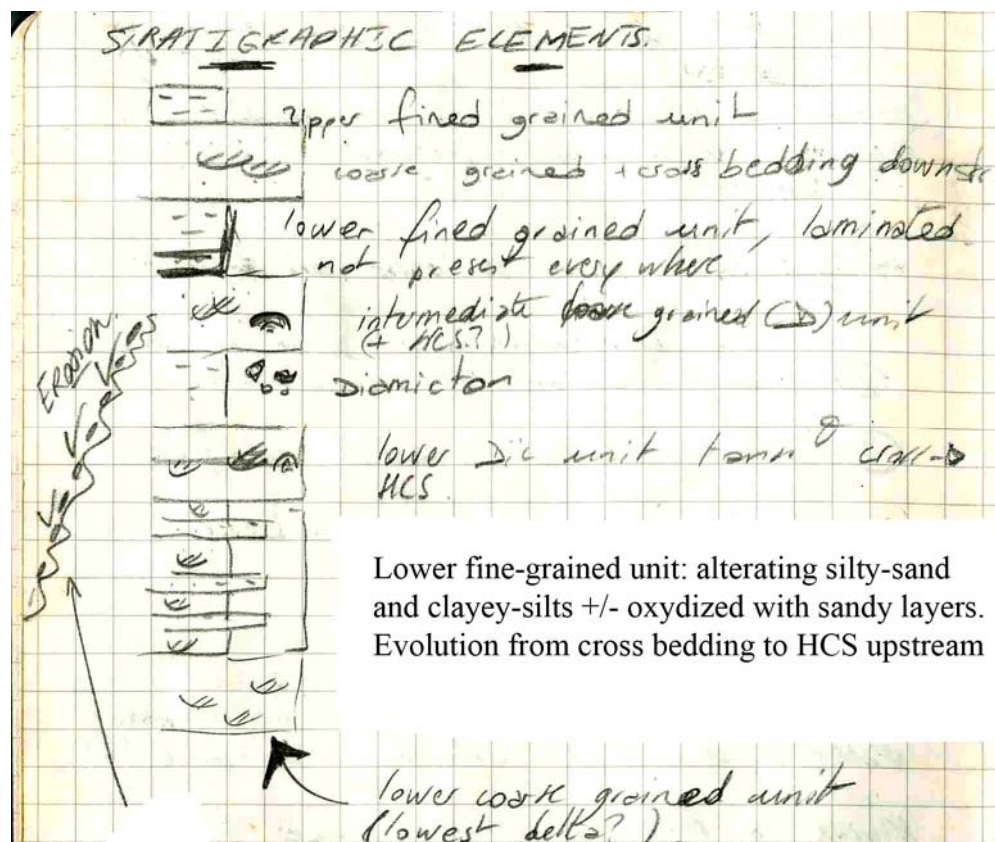 STRATIGRAPHIC ELEMENTS.
Upper fined grained unit
coarse grained + cross bedding
lower fined grained unit, laminated
not present every where
intermediate grained (D) unit
(+ HCS?)
Diamicton
EROSION
lower unit
HCS
Lower fine-grained unit: alterating silty-sand
and clayey-silts +/- oxydized with sandy layers.
Evolution from cross bedding to HCS upstream
lower coarse grained unit
(lowest delta?)